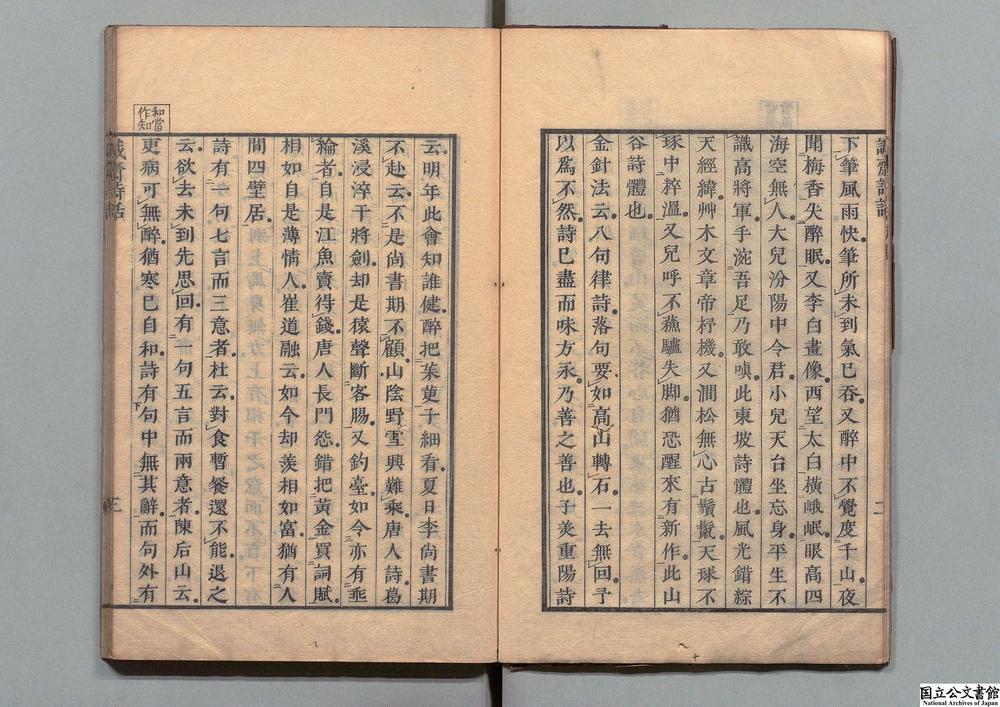 誠齋詩話
下筆風雨快筆所未到氣已吞又醉中不覺度千山夜
聞梅香失醉眠又李白畫像西望太白橫峨岷眼高四
海空無人大兒汾陽中令君小兒天台坐忘身平生不
識高將軍手涴吾足乃敢嗔此東坡詩體也風光錯綜
天經緯艸木文章帝杼機又澗松無心古鬚鬣天球不
琢中粹溫又兒呼不蘓驢失脚猶恐醒來有新作此山
谷詩體也
金針法云八句律詩落句要如高山轉石一去無回予
以爲不然詩已盡而味方永乃善之善也子美重陽詩
二
云明年此會知誰健醉把茱萸子細看夏日李尚書期
不赴云不是尚書期不顧山陰野雪興難乘唐人詩葛
溪浸淬干將劍却是猿聲斷客腸又釣臺如今亦有垂
綸者自是江魚賣得錢唐人長門怨錯把黃金買詞賦
相如自是薄情人崔道融云如今却羨相如富猶有人
間四壁居
詩有一句七言而三意者杜云對食暫餐還不能退之
云欲去未到先思回有一句五言而兩意者陳后山云
更病可無醉猶寒已自和詩有句中無其辭而句外有
和當
作知
誠齋詩話
三
国立公文書館
National Archives of Japan